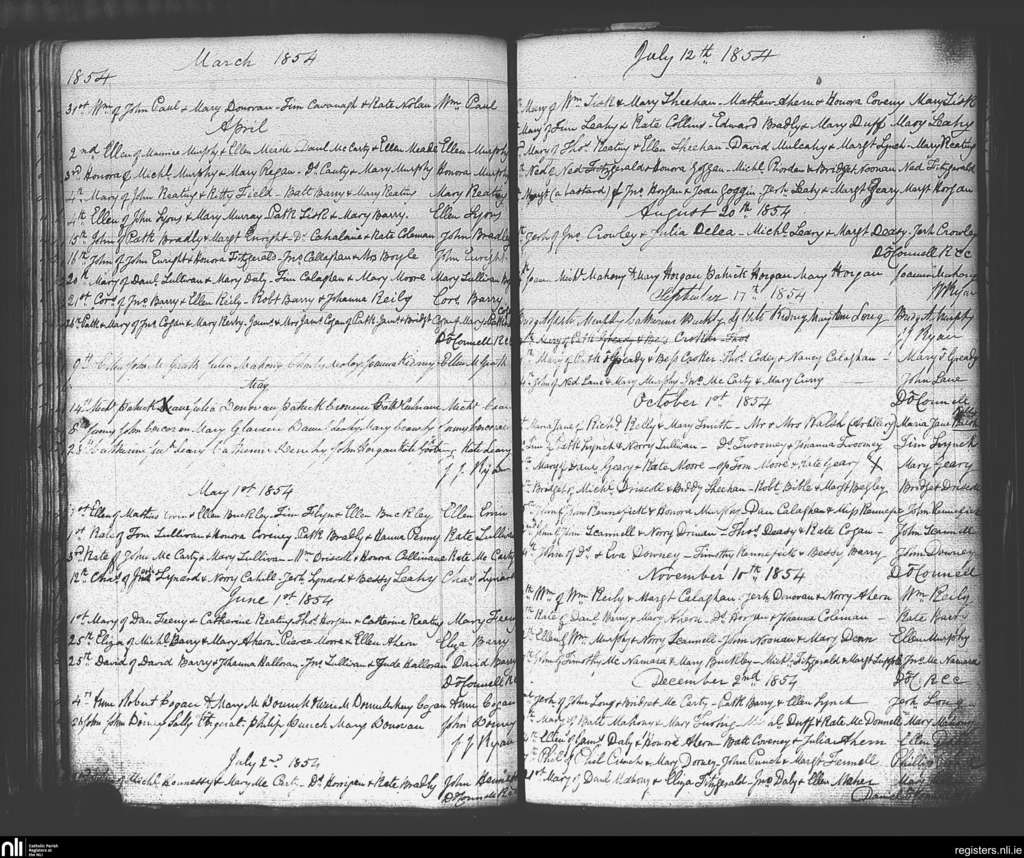 March 1854
1854
31st Wm of John Paul & Mary Donovan - Tim Cavanagh & Kate Nolan Wm Paul
April
2nd Ellen of Maurice Murphy & Ellen Meade - Danl McCarty & Ellen Meade Ellen Murphy
3rd Honora of Michl Murphy & Mary Regan - Ds Canty & Mary Murphy Honora Murphy
Mary of John Keating & Kitty Field - Batt Barry & Mary Keating Mary Keating
4th Ellen of John Lyons & Mary Murray Patk Lisk & Mary Barry. Ellen Lyons
15th John of Patk Bradly & Margt Enright - Ds Cahalane & Kate Coleman John Bradley
16th John of John Enright & Honora Fitzgerald - Jno Callaghan & Mrs Boyle John Enright
20th Mary of Danl Sullivan & Mary Daly - Tim Calaghan & Mary Moore Mary Sullivan
21st Cors of Jno Barry & Ellen Reily - Robt Barry & Johanna Reily Cors Barry
26th Patk & Mary of Jno Cogan & Mary Kerby
D O'Connell RCC
9th John Mc Grath Julia Mahony Ellen McGrath
May
14th Michl Patrick Julia Donovan Patrick
John Corcoran Mary John Corcoran
28 Catherine Leary Catherine John Horgan Kate Kate Leary
J J Ryan
May 1st 1854
1st Ellen of Mathias & Ellen Buckley - Tim Flyn & Ellen Buckley Ellen
1st Kate of Tom Sullivan & Honora Coveney Patk Bradly & Hanna Penny Kate Sullivan
3rd Kate of John McCarty & Mary Sullivan - Wm Driscoll & Honora Callinane Kate McCarty
12th Chas of Lynard & Norry Cahill - Jerh Lynard & Bessy Leahy Chas Lynard
June 1st 1854
1st Mary of Dan Feeny & Catherine Keating Thos Horgan & Catherine Keating Mary Feeny
25th Eliza of Michl Barry & Mary Ahern - Pierce Moore & Ellen Ahern Eliza Barry
25th David of David Barry & Johanna Halloran - Jno Sullivan & Jude Halloran David Barry
D O'Connell RCC
4th Ann Robert Cogan & Mary McDonnell Ann Cogan
John Sally Philip Punch Mary Donovan John
J J Ryan
July 2nd 1854
of Michl Hennessy & Mary McCarty - Ds Horrigan & Kate Bradly John Hennessy
D O'Connell RCC
July 12th 1854
Mary of Wm Lisk & Mary Sheehan - Mathew Ahern & Honora Coveny Mary Lisk
Mary of Tim Leahy & Kate Collins - Edward Bradly & Mary Duff Mary Leahy
Mary of Thos Keating & Ellen Sheehan - David Mulcahy & Margt Lynch Mary Keating
Ned of Ned Fitzgerald & Honora Goggan - Michl Riordan & Bridget Noonan Ned Fitzgerald
Margt (a bastard) of Jno Horgan & Joan Goggin - Jerh Leahy & Margt Geary Margt Horgan
August 20th 1854
Jerh of Jno Crowley & Julia Delea - Michl Leary & Margt Deasy Jerh Crowley
D O'Connell RCC
Joan Michl Mahony & Mary Horgan Patrick Horgan Mary Horgan Joanna Mahony
Ryan
September 17th 1854
Bridgt Murphy
J J Ryan
Mary of Patk Gready & Bess Casker - Thos Codey & Nancy Calaghan Mary Gready
John of Ned Lane & Mary Murphy Jno McCarty & Mary Curry John Lane
D O'Connell
October 1st 1854
Maria Jane of Richd Kelly & Mary Smith - Mr & Mrs Walsh (Artillery) Maria Jane
Tim of Patk Lynch & Norry Sullivan - Ds Twooney & Johanna Twooney Tim Lynch
Mary of Danl Geary & Kate Moore - Tom Moore & Kate Geary X Mary Geary
Bridget of Michl Driscoll & Biddy Sheehan - Robt Bible & Margt Begley Bridget Driscoll
of Tom Kennefick & Honora Murphy - Dan Calaghan & Miss Kennefick John Kennefick
John of John Scannell & Norry Drinan - Thos Deasy & Kate Cogan - John Scannell
John of Ds & Eva Downey - Timothy Kennefick & Bessy Barry John Downey
D O'Connell
November 10th 1854
Wm of Wm Reily & Margt Calaghan - Jerh Donovan & Norry Ahern Wm Reily
Kate of Danl Barry & Mary Ahern - Ds Horgan & Johanna Coleman - Kate Barry
Ellen of Wm Murphy & Norry Scannell - John Noonan & Mary Denn Ellen Murphy
John of Timothy McNamara & Mary Buckley - Michl Fitzgerald & Margt Supple Jno McNamara
D O'C RCC
December 2nd 1854
Jerh of John Long & Bridget McCarty - Patk Barry & Ellen Lynch Jerh Long
Mary of Batt Mahony & Mary Gosling Duff & Kate McDonnell Mary Mahony
Ellen of James Daly & Honora Ahern - Watt Coveney & Julia Ahern Ellen Daly
Phil of Phil Cusack & Mary Dorney John Punch & Margt Fennell Phillip
21st Mary of Danl Mahony & Eliza Fitzgerald - Jno Daly & Ellen Maher Mary
nli
Catholic Parish
Registers at
the NLI
registers.nli.ie